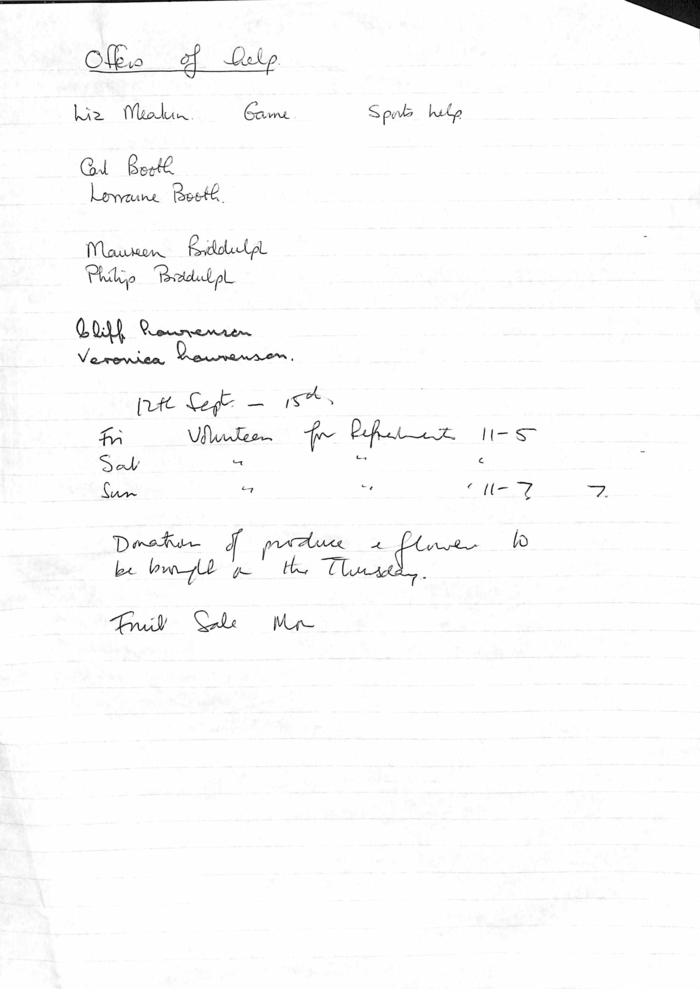 Offers of help.
Liz Meakin. Game Sports help.
Carl Booth
Lorraine Booth.
Maureen Biddulph
Philip Biddulph
Cliff Lowrenson
Veronica Lowrenson.
12th Sept. - 15th.
Fri Volunteers for Refreshments 11-5
Sat " " "
Sun " " " 11-? ?
Donation of produce & flowers to
be brought on the Thursday.
Fruit Sale Mon